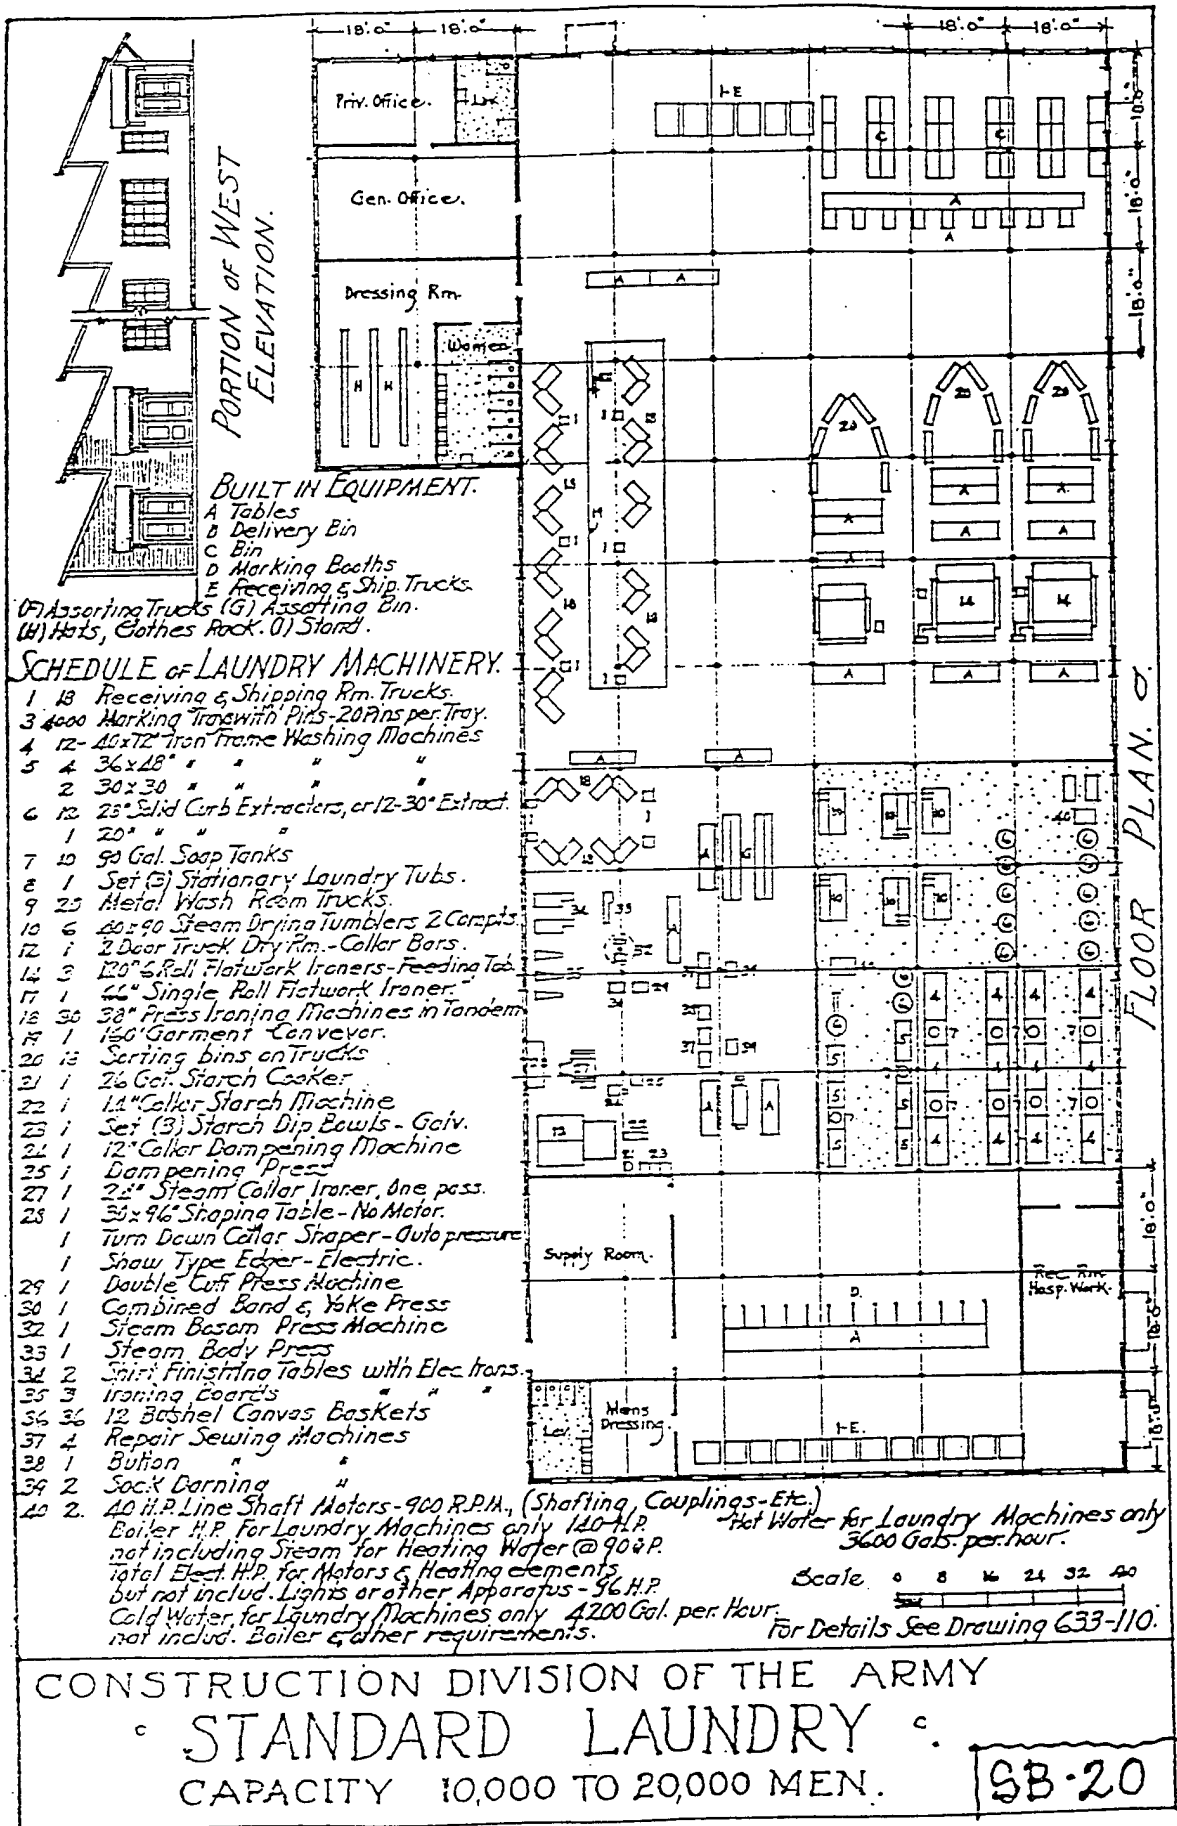 18'.0" 18'.0" 18'.0" 18'.0"
Priv. Office. Lav.
1-E
C C
10'.0"
18'.0"
18'.0"
Gen. Office.
A
A
Dressing Rm.
Women
H H
A A
PORTION OF WEST
ELEVATION.
20 20 20
BUILT IN EQUIPMENT.
A Tables
B Delivery Bin
C Bin
D Marking Booths
E Receiving & Ship. Trucks.
(F) Assorting Trucks (G) Assorting Bin.
(H) Hats, Clothes Rack. (I) Stand.
SCHEDULE OF LAUNDRY MACHINERY.
1 18 Receiving & Shipping Rm. Trucks.
3 4000 Marking Tray with Pins-20 Pins per Tray.
4 12- 40x72" Iron Frame Washing Machines
5 4 36x48" " " " "
2 30x30 " " " "
6 12 28" Solid Curb Extractors, or 12-30" Extract.
1 20" " " "
7 10 90 Gal. Soap Tanks
8 1 Set (3) Stationary Laundry Tubs.
9 25 Metal Wash Room Trucks.
10 6 40x90 Steam Drying Tumblers 2 Compts.
12 1 2 Door Truck Dry Rm.-Collar Bars.
14 3 120" 6 Roll Flatwork Ironers-Feeding Tab.
17 1 66" Single Roll Flatwork Ironer.
18 30 38" Press Ironing Machines in Tandem
19 1 160' Garment Conveyor.
20 18 Sorting bins on Trucks
21 1 26 Gal. Starch Cooker
22 1 14" Collar Starch Machine
23 1 Set (3) Starch Dip Bowls - Galv.
24 1 12" Collar Dampening Machine
25 1 Dampening Press
27 1 24" Steam Collar Ironer, One pass.
28 1 30x96" Shaping Table - No Motor.
1 Turn Down Collar Shaper-Auto pressure
1 Shaw Type Edger-Electric.
29 1 Double Cuff Press Machine
30 1 Combined Band & Yoke Press
32 1 Steam Bosom Press Machine
33 1 Steam Body Press
34 2 Shirt Finishing Tables with Elec Irons.
35 3 Ironing Boards " " "
36 36 12 Bushel Canvas Baskets
37 4 Repair Sewing Machines
38 1 Button " "
39 2 Sock Darning "
40 2. 40 H.P. Line Shaft Motors-900 R.P.M., (Shafting, Couplings-Etc.)
Boiler H.P. For Laundry Machines only 140 H.P.
not including Steam for Heating Water @ 90#P.
Total Elect. H.P. for Motors & Heating elements
but not includ. Lights or other Apparatus - 96 H.P.
Cold Water, for Laundry Machines only 4200 Gal. per. Hour.
not includ. Boiler & other requirements.
FLOOR PLAN.
Supply Room.
Rec. Rm.
Hosp. Work.
D.
A
18'.0"
18'.0"
18'.0"
Lav.
Mens
Dressing.
1-E.
Hot Water for Laundry Machines only
3600 Gals. per. hour.
Scale 0 8 16 24 32 40
For Details See Drawing 633-110.
CONSTRUCTION DIVISION OF THE ARMY
STANDARD LAUNDRY
CAPACITY 10,000 TO 20,000 MEN.
SB-20